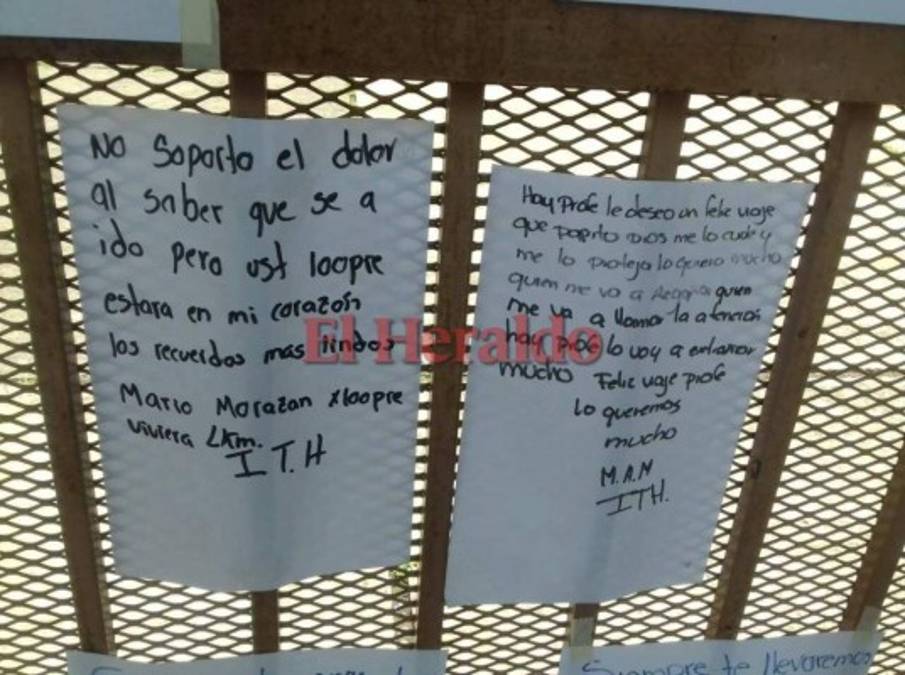 No Soporto el dolor
al saber que se a
ido pero ust loopre
estara en mi corazón
los recuerdos mas lindos
Mario Morazan xloopre
viviera LKm.
I T.H
Hay Profe le deseo un feliz viaje
que papito Dios me lo cuide y
me lo proteja lo quiero mucho
quien me va a quien
me va a llamar la atencion
hay profe lo voy a extrañar
mucho Feliz viaje profe
lo queremos
mucho
M.A.M
ITH.
El Heraldo
Siempre te llevaremos